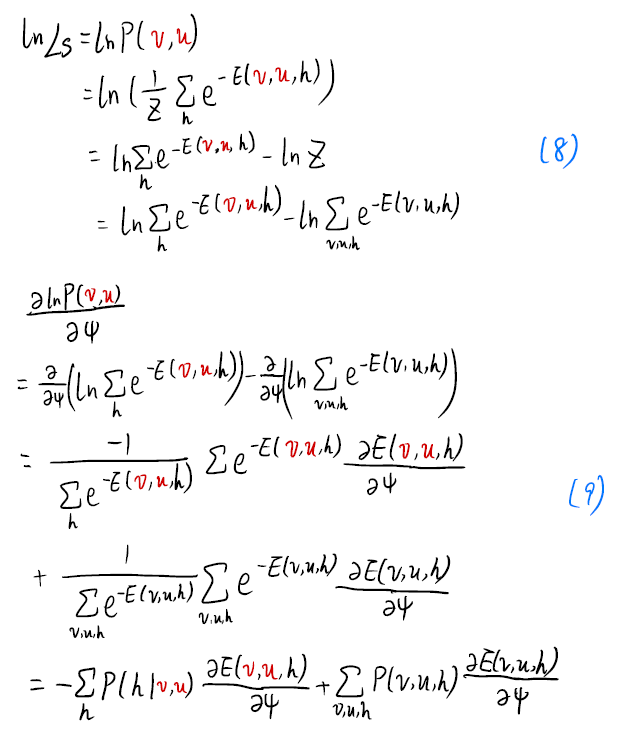 ln Ls = ln P(v,u)
= ln (1/Z Σ_h e^{-E(v,u,h)})
= ln Σ_h e^{-E(v,u,h)} - ln Z (8)
= ln Σ_h e^{-E(v,u,h)} - ln Σ_{v,u,h} e^{-E(v,u,h)}
∂ln P(v,u) / ∂ψ
= ∂/∂ψ (ln Σ_h e^{-E(v,u,h)}) - ∂/∂ψ (ln Σ_{v,u,h} e^{-E(v,u,h)})
= -1 / (Σ_h e^{-E(v,u,h)}) Σ e^{-E(v,u,h)} ∂E(v,u,h)/∂ψ (9)
+ 1 / (Σ_{v,u,h} e^{-E(v,u,h)}) Σ_{v,u,h} e^{-E(v,u,h)} ∂E(v,u,h)/∂ψ
= -Σ_h P(h|v,u) ∂E(v,u,h)/∂ψ + Σ_{v,u,h} P(v,u,h) ∂E(v,u,h)/∂ψ